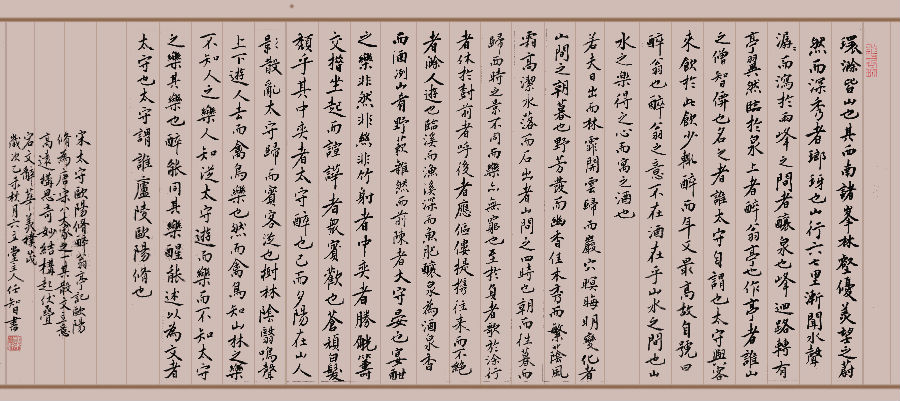 環滁皆山也其西南諸峯林壑優美望之蔚
然而深秀者瑯玡也山行六七里漸聞水聲
潺潺而瀉於兩峰之間者釀泉也峰迴路轉有
亭翼然臨於泉上者醉翁亭也作亭者誰山
之僧智僊也名之者誰太守自謂也太守與客
來飲於此飲少輒醉而年又最高故自號曰
醉翁也醉翁之意不在酒在乎山水之間也山
水之樂得之心而寓之酒也
若夫日出而林霏開雲歸而巖穴暝晦明變化者
山間之朝暮也野芳發而幽香佳木秀而繁蔭風
霜高潔水落而石出者山間之四時也朝而往暮而
歸四時之景不同而樂亦無窮也至於負者歌於涂行
者休於樹前者呼後者應傴僂提攜往來而不絕
者滁人遊也臨溪而漁溪深而魚肥釀泉為酒泉香
而酒洌山肴野蔌雜然而前陳者太守宴也宴酣
之樂非然非絲非竹射者中奕者勝觥籌
交措坐起而諠譁者眾賓歡也蒼顏白髮
頹乎其中央者太守醉也已而夕陽在山人
影散亂太守歸而賓客從也樹林陰翳鳴聲
上下遊人去而禽鳥樂也然而禽鳥知山林之樂
不知人之樂人知從太守遊而樂而不知太守
之樂其樂也醉能同其樂醒能述以為文者
太守也太守謂誰廬陵歐陽脩也
宋太守歐陽脩醉翁亭記歐陽
脩為唐宋八大家之一其散文立意
高遠構思奇妙結構起伏疊
宕文辭華美樸茂
歲次己亥秋月六立堂主人任智書